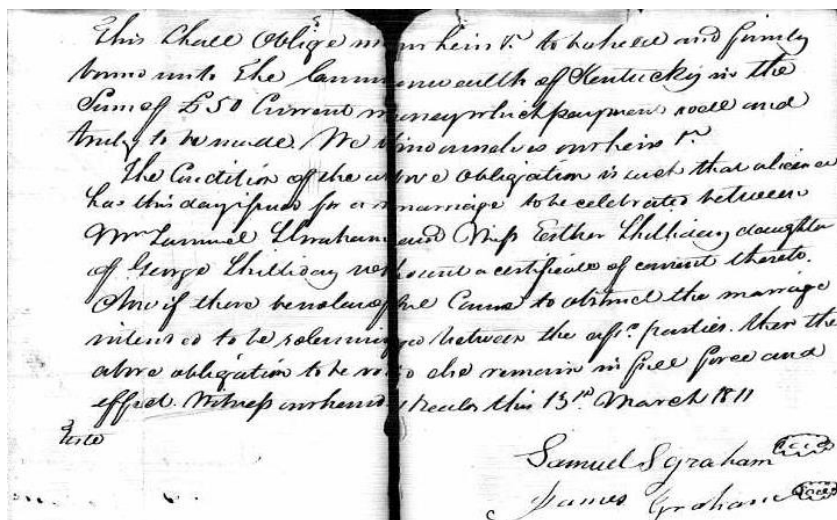 This Shall Oblige us our heirs &c. to be held and firmly
bound unto The Commonwealth of Kentucky in the
Sum of £50 Current money which payment well and
truly to be made. We bind ourselves our heirs &c.
The Condition of the above obligation is such that a licence
has this day issued for a marriage to be celebrated between
Mr Samuel S Graham and Miss Esther Shilliday daughter
of George Shilliday who sent a certificate of consent thereto.
Now if there be no lawful Cause to obstruct the marriage
intended to be solemnized between the afsd. parties. then the
above obligation to be void else remain in full force and
effect. Witness our hands & seales this 13th. March 1811
Teste
Samuel S Graham Seal
James Graham Seal